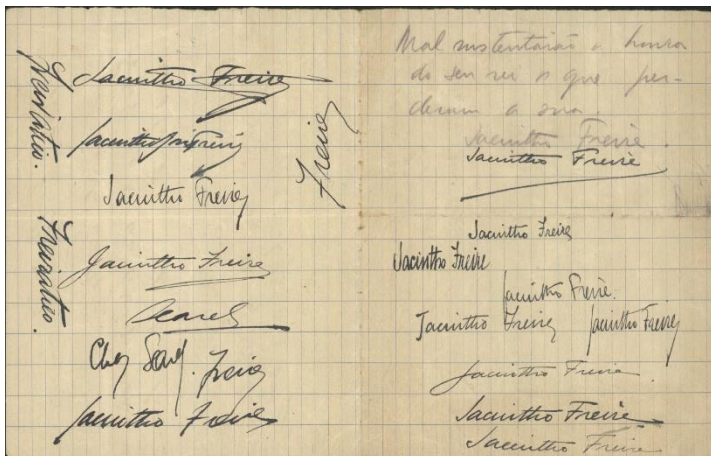 Jacinttho Freire
Jacinttho Freire
Jacinttho Freire
Jacinttho Freire
Chez Freire
Jacinttho Freire
Freire
Mal sustentarão a honra
do seu rei os que per-
deram a sua.
Jacinttho Freire.
Jacinttho Freire
Jacinttho Freire
Jacinttho Freire
Jacinttho Freire.
Jacinttho Freire Jacinttho Freire
Jacinttho Freire.
Jacinttho Freire
Jacinttho Freire